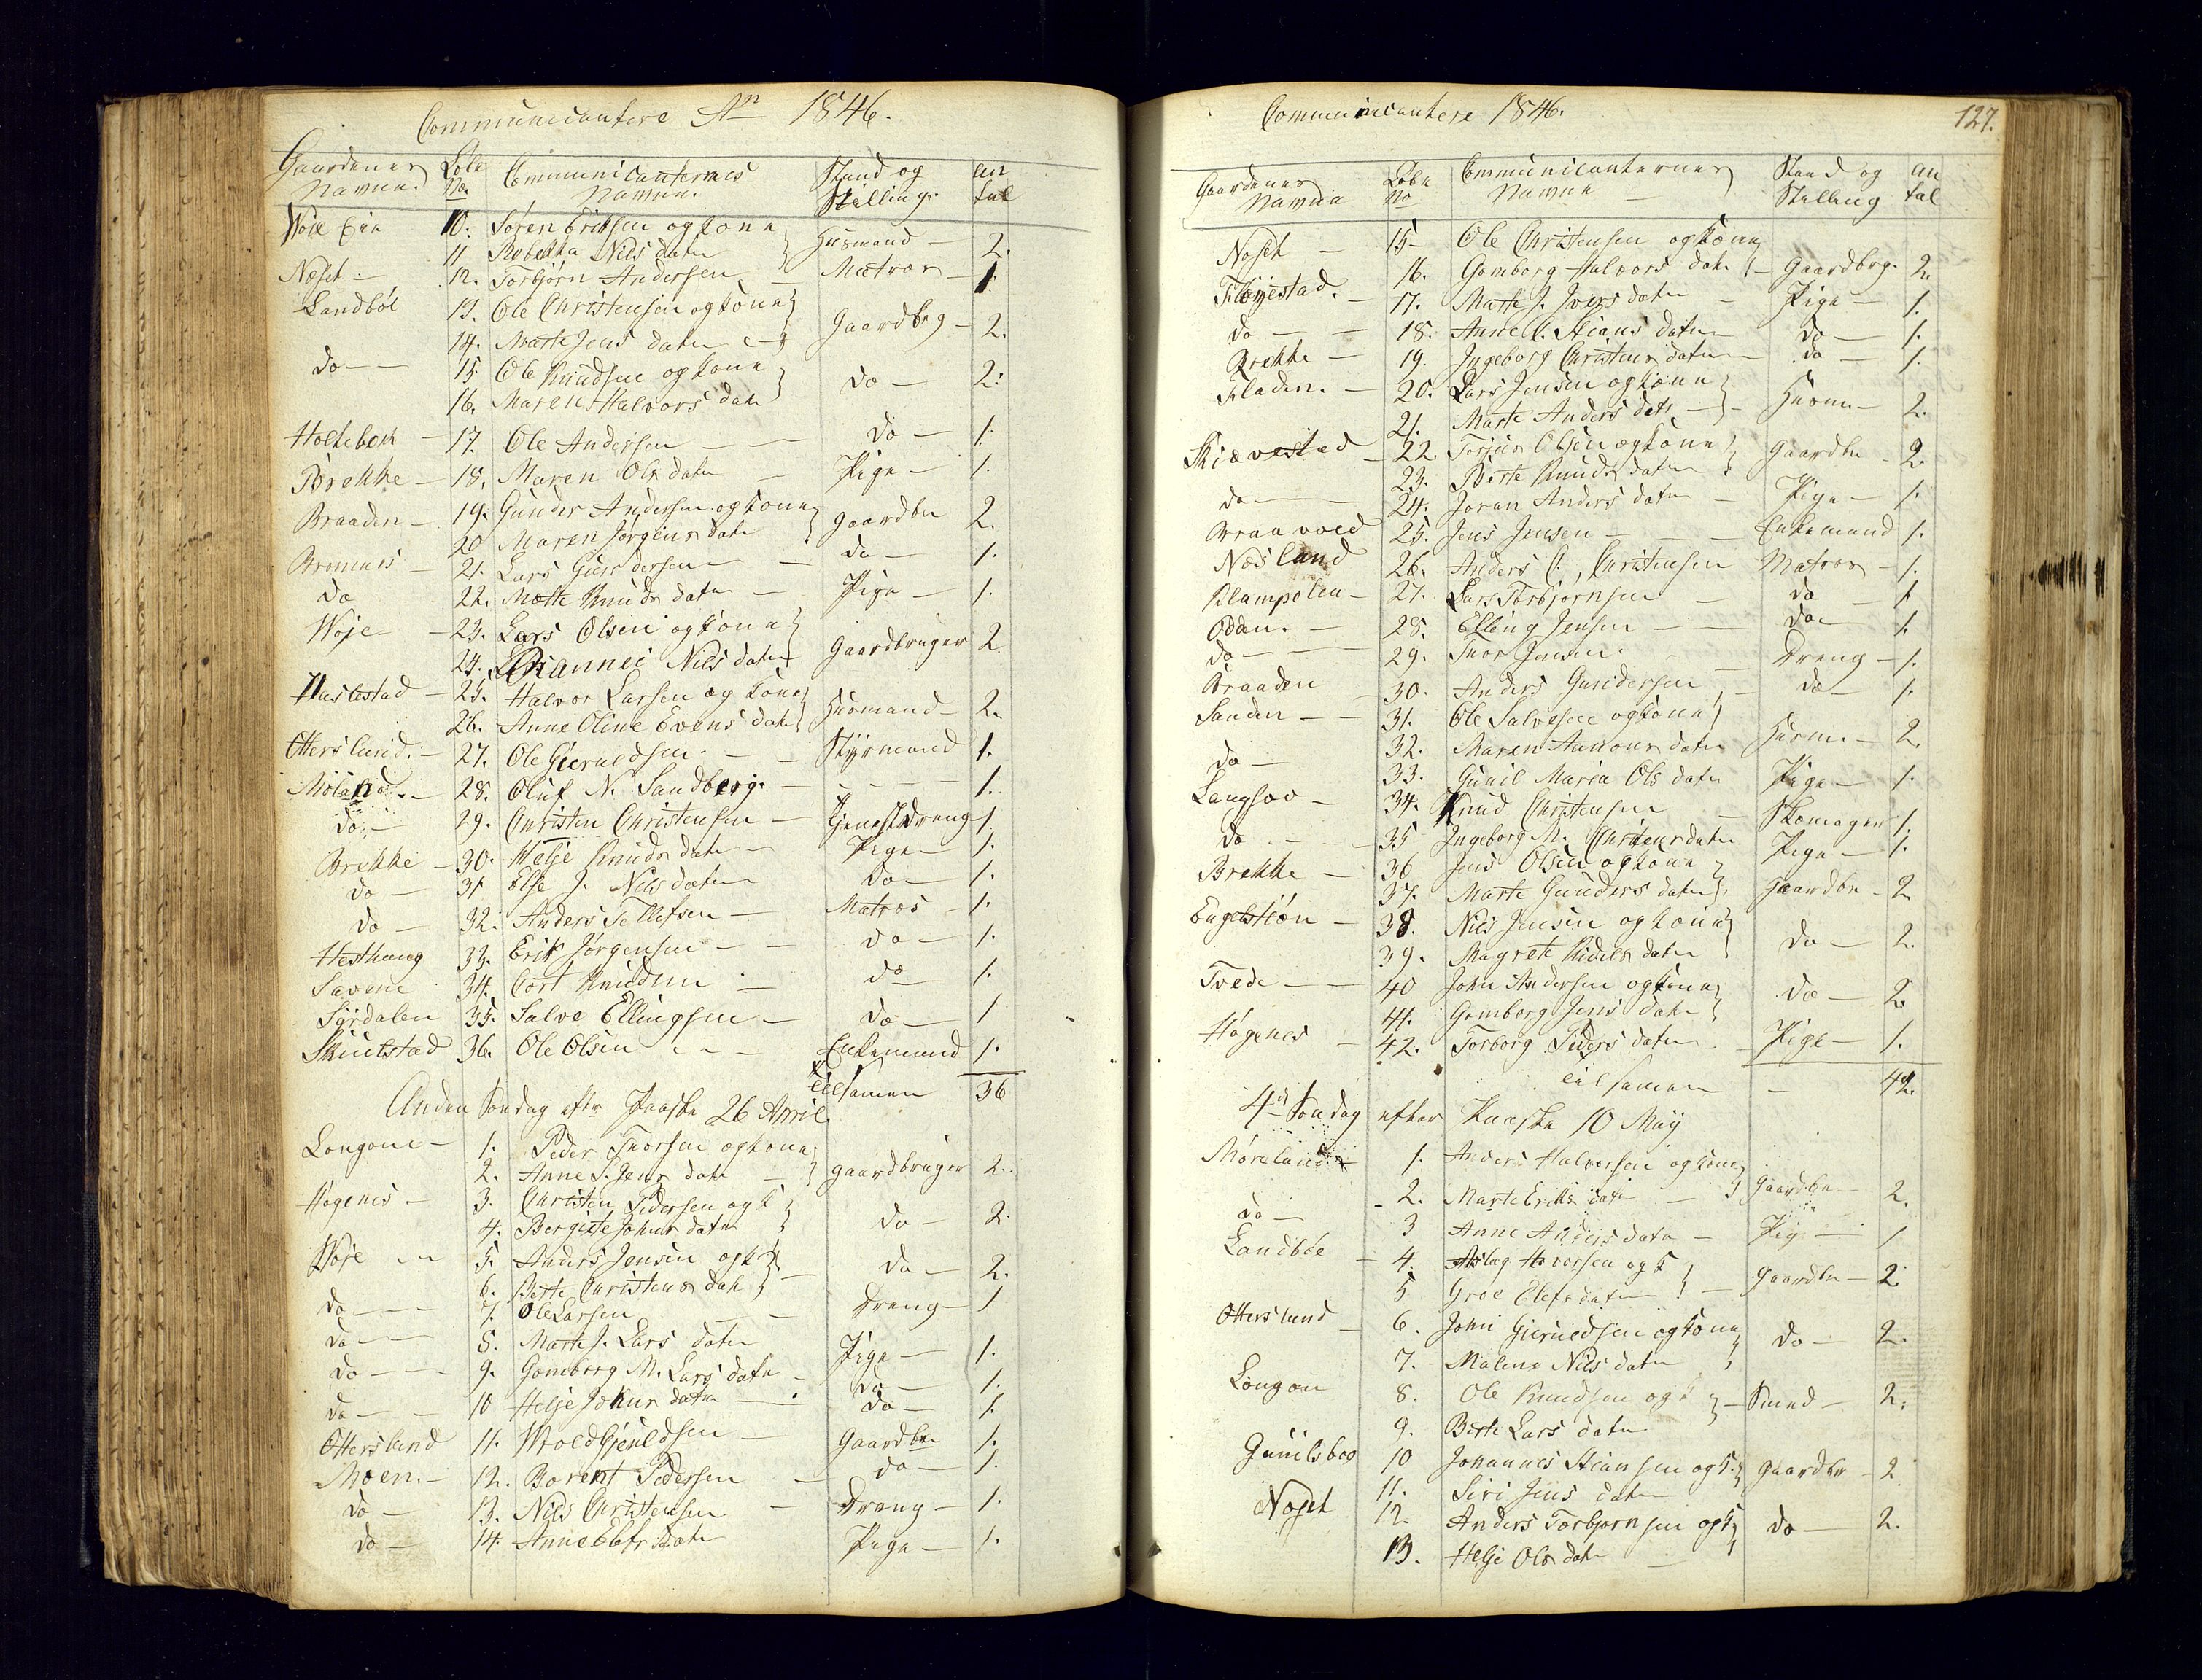 Communicantere An 1846.
Gaardenes Navne. Løbe No. Communicanternes Navne. Stand og Stilling. antal
Woje Eie 10. Søren Eriksen og kone
11 Rebekka Nils datter Husmand 2.
Næset 12. Torbjørn Andersen Matros 1.
Landböl 13. Ole Christensen og kone
14. Marte Jens datter Gaardbrg 2.
do 15 Ole Knudsen og kone
16. Maren Halvors datr do 2.
Holtebek 17. Ole Andersen do 1.
Brekke 18. Maren Ols datter Pige 1.
Braaden 19. Gunder Andersen og kone
20 Maren Jørgens datr gaardbr 2.
Bromnes 21. Lars Gundersen do 1.
do 22. Mette Knuds datter Pige 1.
Woje 23. Lars Olsen og kone
24. Nils datter Gaardbruger 2.
Hastestad 25. Halvor Larsen og kone
26. Anne Oline Evens datr Husmand 2.
Otterslund. 27. Ole Gieruldsen Styrmand 1.
Möland. 28. Oluf N. Sandberg. 1.
do. 29. Christen Christensen Tjenestdreng 1
Brekke 30. Helje Knuds datr Pige 1.
do 31 Else J. Nils datter do 1.
do 32. Anders Tellefsen Matros 1.
Hesthaug 33. Erik Jørgensen do 1.
Savene 34. Cort Knudsen do 1.
Syrdalen 35. Salve Ellingsen do 1
36. Ole Olsen Enkemand 1.
Tilsamen 36
Anden Søndag eftr Paaske 26 April.
Longone 1. Peder Thorsen og kone
2. Anne S. Jens datr gaardbruger 2.
Hagenes 3. Christen Pedersen og k
4. Bergitte Johns datter do 2.
Woje 5. Anders Jensen og k
6. Berte Christens datr do 2.
do 7. Ole Larsen Dreng 1
do 8. Marte J. Lars datter Pige 1.
do 9. Gomborg M. Lars datter do 1.
do 10 Helje Johns datter do 1.
Otterslund 11. Wrold Gjeruldsen Gaardbr 1.
Moen. 12. Borent Pedersen do 1.
do 13. Nils Christensen Dreng 1.
do 14. Anne Elefs datr Pige 1.
Communicantere 1846. 127.
Gaardenes Navne Løbe No Communicanternes Navne Stand og Stilling antal
Noset 15 Ole Christensen og kone
16. Gomborg Halvors datr Gaardbrg. 2.
Fløyestad. 17. Marte J. Ivers datter Pige 1.
do 18. Anne datter do 1.
Brekke 19. Ingeborg Christens datter do 1.
Fladen. 20. Lars Jensen og kone
21. Marte Anders datr Husm 2.
Skiævestad 22. Torjus Olsen og kone
23. Berte Knuds datter gaardbr 2.
do 24. Joran Anders datter Pige 1.
Braavold 25. Jens Jensen Enkemand 1.
Næsland 26. Anders C. Christensen Matros 1.
Klampelien 27. Lars Torbjornsen do 1
Odden. 28. Elling Jensen do 1.
do 29. Thor Jensen Dreng 1.
Braaden 30. Anders Gundersen do 1.
Sanden 31. Ole Salvesen og kone
32. Maren Aanons datter Husm. 2.
do 33. Gunil Maria Ols datter Pige 1.
Langsov 34. Knud Christensen Skomager 1.
do 35 Ingeborg M. Christensdatr Pige 1.
Brekke 36 Jens Olsen og kone
37. Marte Gunders datter gaardbr 2
Engelstiøn 38. Nils Jensen og kone
39. Magrete datter do 2.
Tvede 40 John Andersen og kone
41. Gomborg Jens datr do 2.
Hagenes 42. Torborg Peders datter Pige 1.
tilsamen 42.
4de Søndag efter Paaske 10 May
Møreland 1. Anders Halvorsen og kone
2. Marte Eriks datr Gaardbr 2.
do 3 Anne Anders datr Pig 1
Landbøe 4. Aslag Havorsen og k
5 Groe Elefs datter gaardbr 2.
Otterslund 6. John Gieruldsen og kone
7. Malene Nils datr do 2.
Longon 8. Ole Knudsen og k Smed 2.
9. Berte Lars datter
Gunilsboe 10 Johannes og k. gaardbr 2
11. Siri Jens datr
Noset 12. Anders Torbjornsen og k do 2.
13. Helje Ols datr